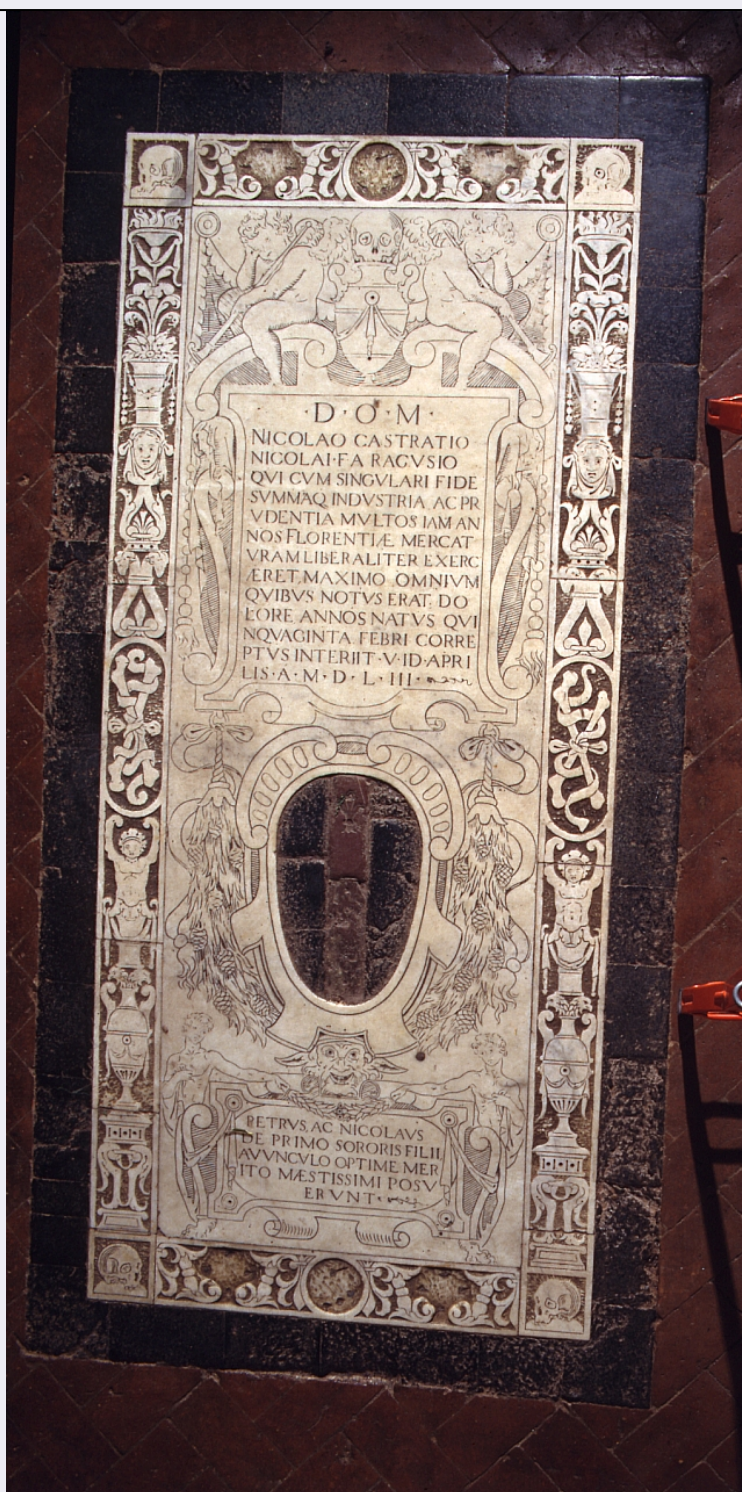 ·D·O·M·
NICOLAO CASTRATIO
NICOLAI·FA RAGVSIO
QVI CVM SINGVLARI FIDE
SVMMAQ INDVSTRIA AC PR
VDENTIA MVLTOS IAM AN
NOS FLORENTIÆ MERCAT
VRAM LIBERALITER EXERC
ÆRET MAXIMO OMNIVM
QVIBVS NOTVS ERAT DO
LORE ANNOS NATVS QVI
NQVAGINTA FEBRI CORRE
PTVS INTERIIT·V·ID·APRI
LIS·A·M·D·L·III·
PETRVS AC NICOLAVS
DE PRIMO SORORIS FILII
AVVNCVLO OPTIME MER
ITO MÆSTISSIMI POSV
ERVNT·